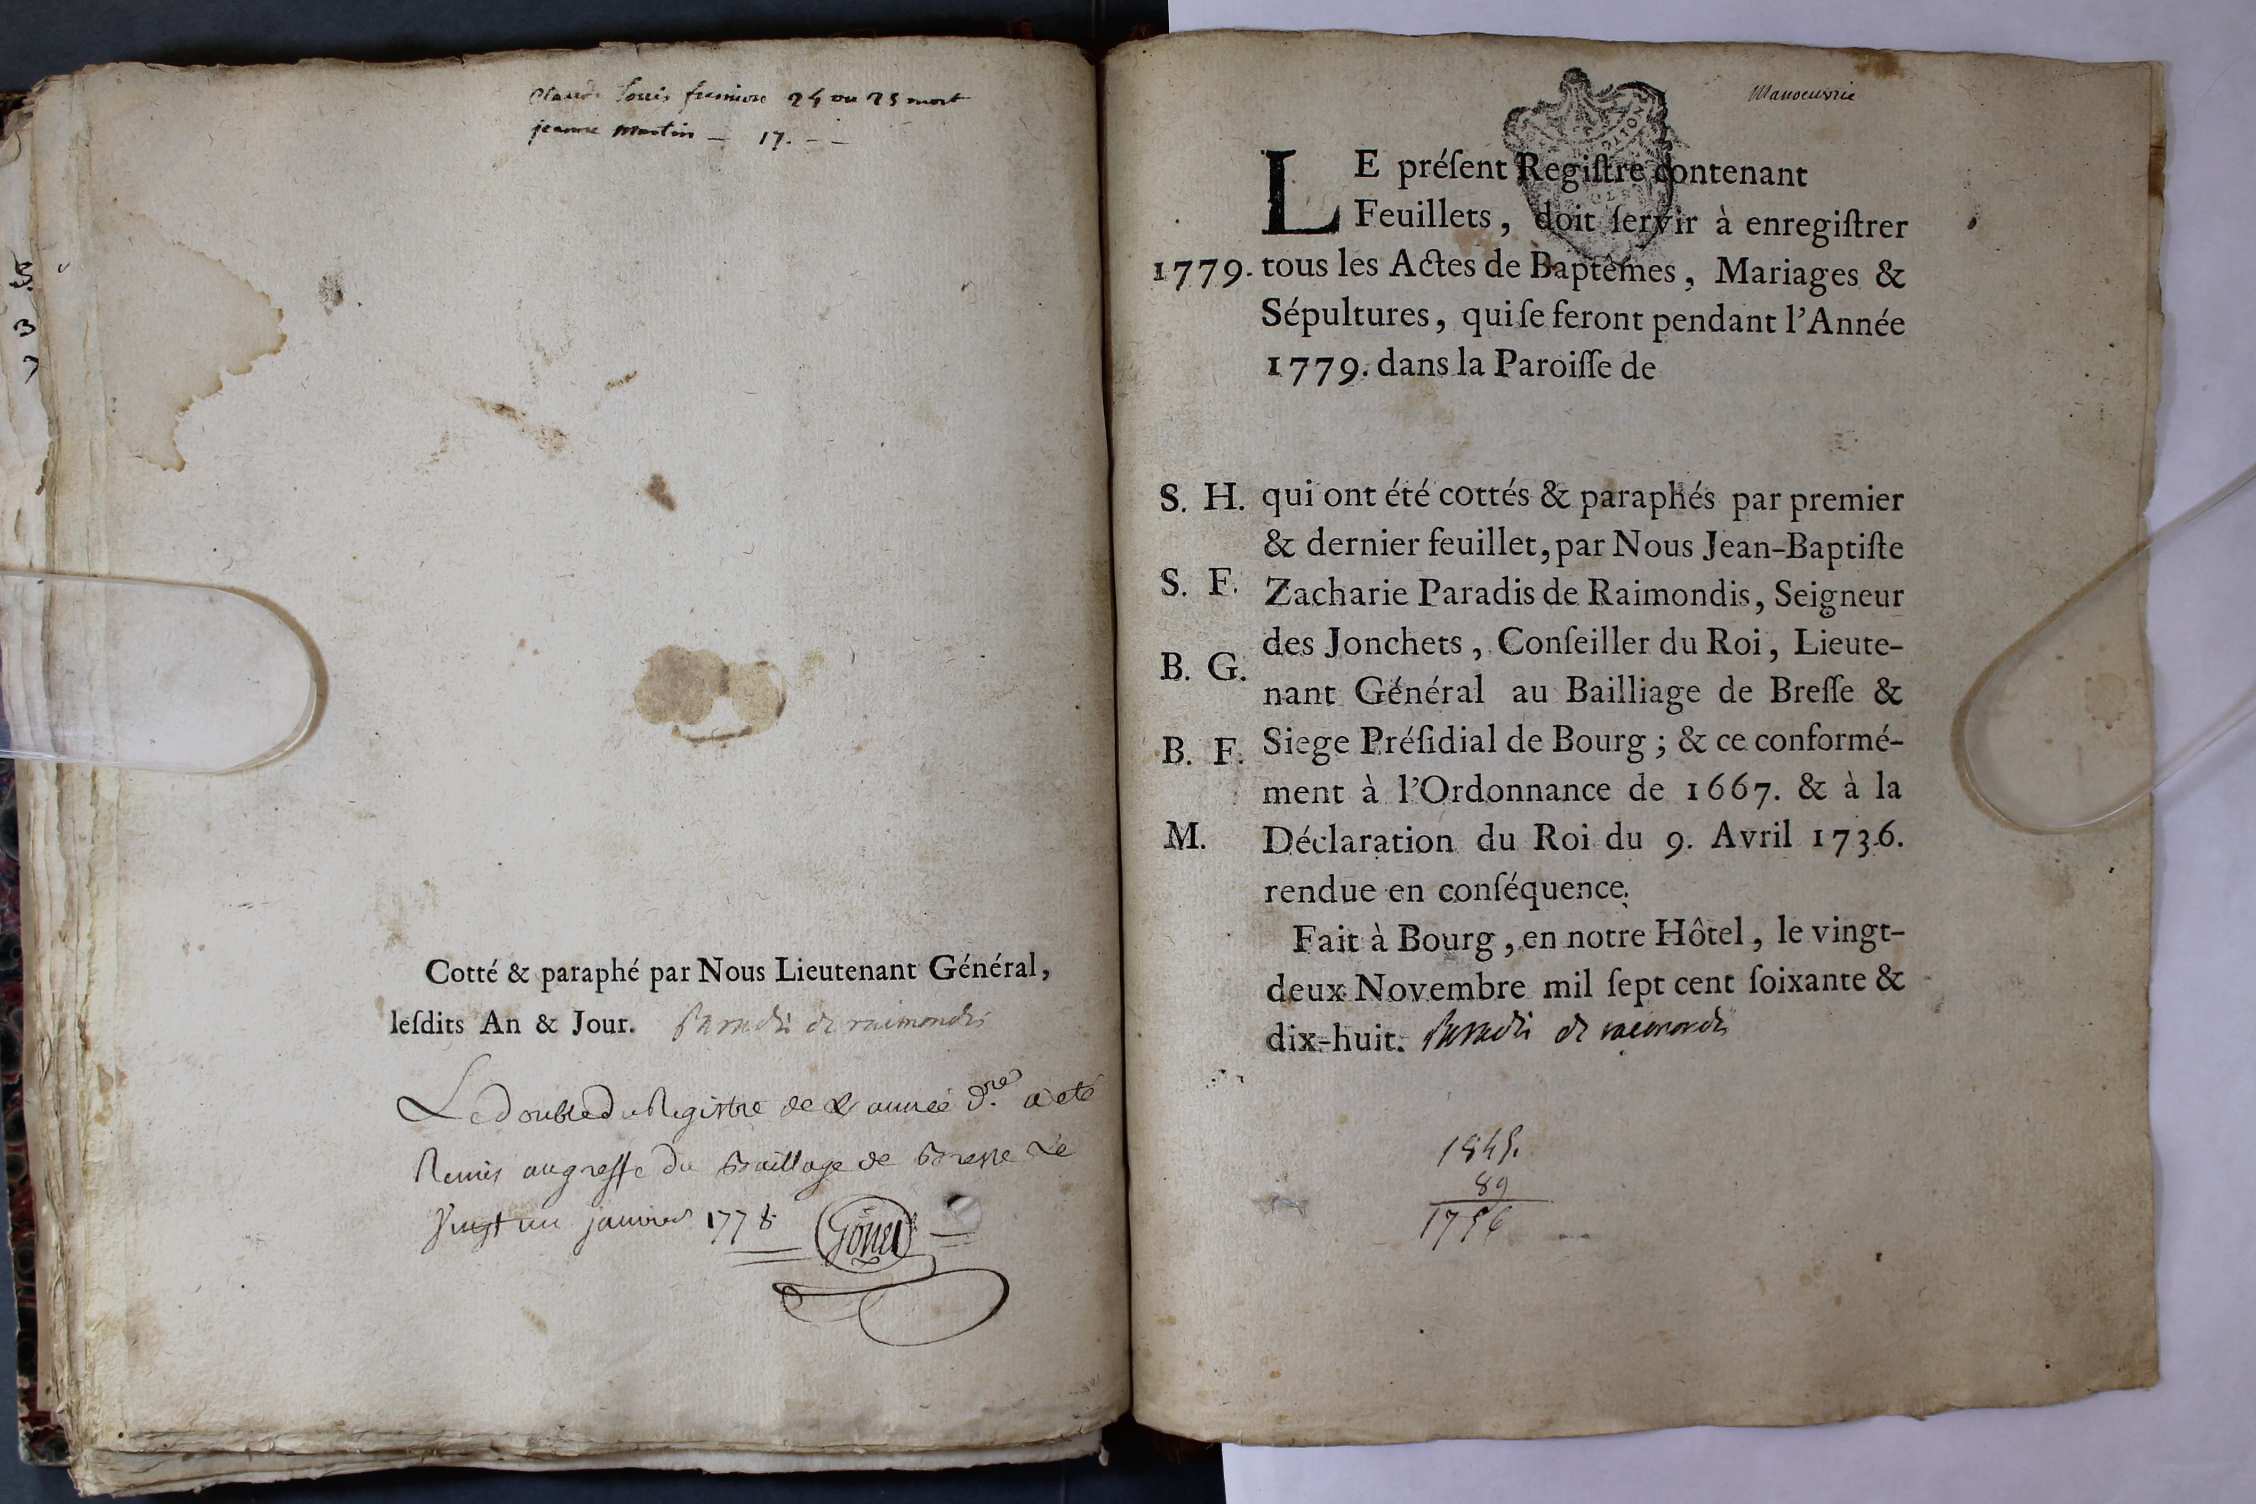 Claude Louis 24 ou 25 mort
jeanne Martin – 17. – –
Cotté & paraphé par Nous Lieutenant Général,
leſdits An & Jour. Paradis de raimondis
Le double du Registre de L'année d.re a été
Remis au greffe du Baillage de Bresse Le
Vingt un janvier 1778
Manoeuvrie
LE préſent Regiſtre contenant
Feuillets, doit ſervir à enregiſtrer
1779. tous les Actes de Baptêmes, Mariages &
Sépultures, qui ſe feront pendant l'Année
1779. dans la Paroiſſe de
S. H. qui ont été cottés & paraphés par premier
& dernier feuillet, par Nous Jean-Baptiſte
S. F. Zacharie Paradis de Raimondis, Seigneur
des Jonchets, Conſeiller du Roi, Lieute-
B. G. nant Général au Bailliage de Breſſe &
B. F. Siege Préſidial de Bourg ; & ce conformé-
ment à l'Ordonnance de 1667. & à la
M. Déclaration du Roi du 9. Avril 1736.
rendue en conſéquence.
Fait à Bourg, en notre Hôtel, le vingt-
deux Novembre mil ſept cent ſoixante &
dix-huit. Paradis de raimondis
1845.
89
1756